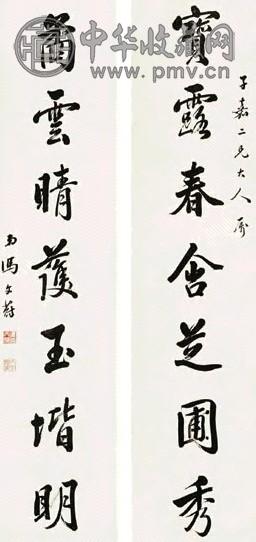 中华收藏网
www.pmv.cn
子嘉二兄大人属
寶露春含芝圃秀
矞雲晴護玉堦明
弟馮文蔚